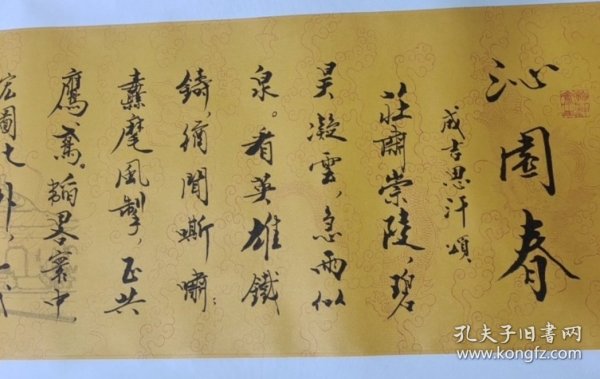 沁園春
成吉思汗頌
莊肅崇陵，碧
昊凝雲，急雨似
泉。看英雄鐵
鑄，猶聞嘶嘯；
纛麾風掣，正共
鷹騫。韜畧寰中
宏圖七
孔夫子旧书网
www.kongfz.com